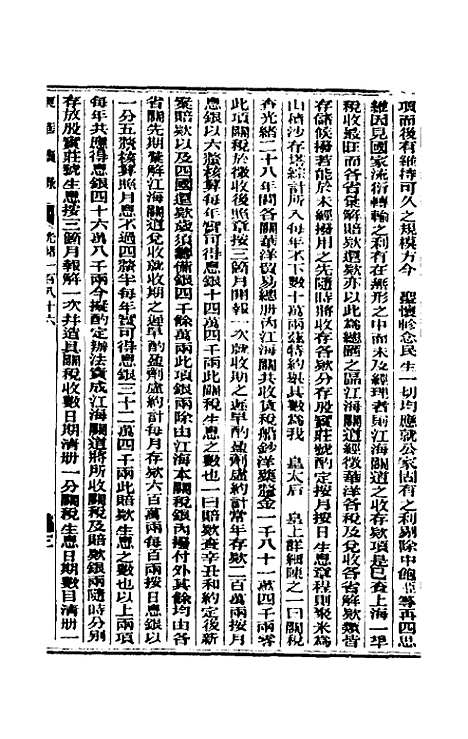 項而後有維持可久之規模方今 聖懷軫念民生一切均應就公家固有之利剔除中飽 等再四思
維因見國家流衍轉輸之利有在無形之中而未及經理者則江海關道之收存款項是已查上海一埠
稅收最旺而各省彙解賠款還款亦以此爲總匯之區江海關道經徵華洋各稅及兌收各省解款類皆
存儲候撥若能於未經撥用之先隨時將收存各款分存股實莊號酌定按月按日生息章程則聚米爲
山積沙存塔綜計所入每年不下數十萬兩茲特約舉其數爲我 皇太后 皇上詳細陳之一曰關稅
查光緒二十八年間各關華洋貿易總册內江海關共收貨稅船鈔洋藥釐金一千八十一萬四千兩零
此項關稅於徵收後照章按三箇月開報一次就收期之遲早酌盈劑虛約計常年存款二百萬兩按月
應銀以六釐核算每年實可得息銀十四萬四千兩此關稅生息之數也一曰賠款查辛丑和約定後新
案賠款以及四國還款歲須籌備銀四千餘萬兩此項銀兩除由江海本關稅銀內撥付外其餘均由各
省關先期彙解江海關道兌收就收期之遲早酌盈劑虛約計每月存款六百萬兩每百兩按日息銀以
一分五釐核算照月息不過四釐半每年實可得息銀三十二萬四千兩此賠款生息之數也以上兩項
每年共應得息銀四十六萬八千兩今擬酌定辦法責成江海關道將所收關稅及賠款銀兩隨時分別
存放股實莊號生息按三箇月報解一次并造具關稅收數日期清册一分關稅生息日期數目清册一
東華續錄 光緒一百八十六 三